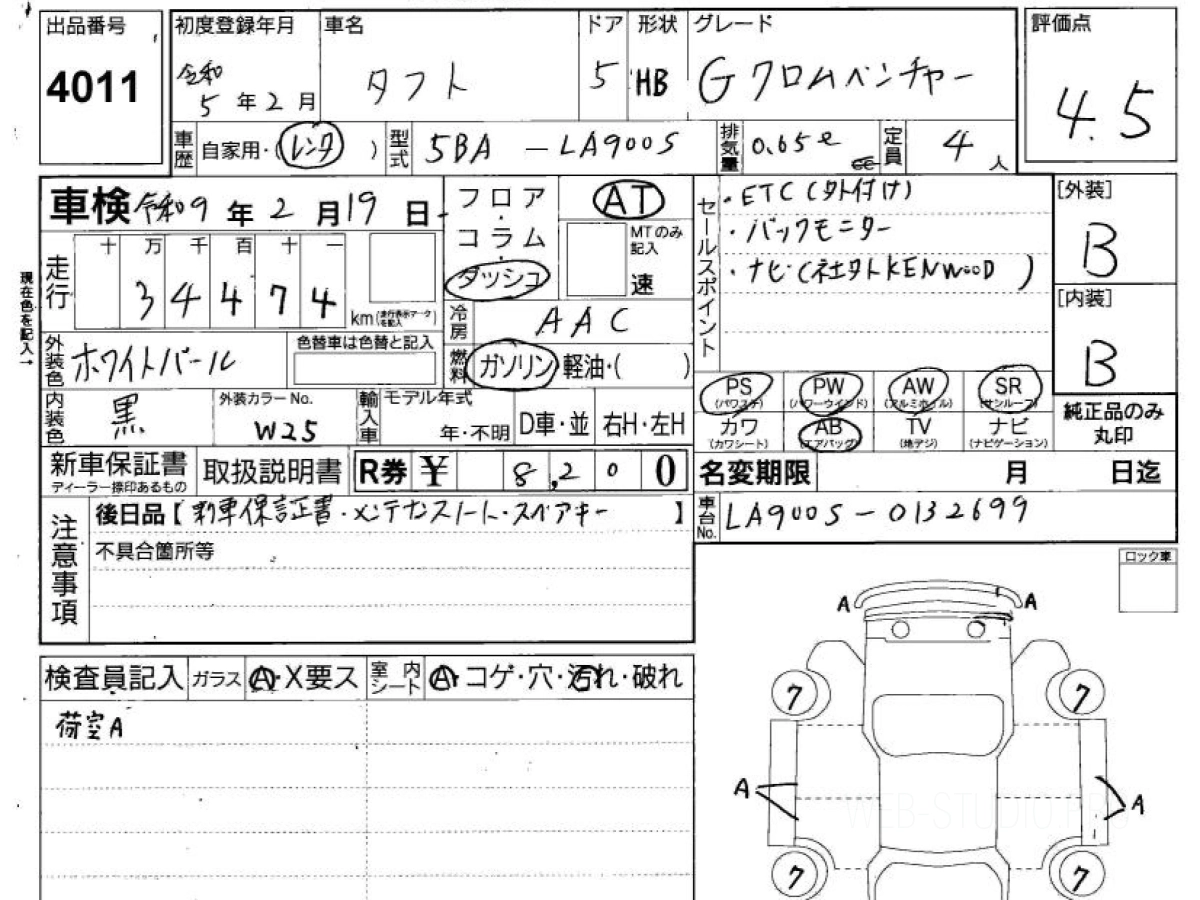 出品番号 4011
初度登録年月 令和5年2月
車名 タフト
ドア 5
形状 HB
グレード G クロムベンチャー
評価点 4.5
車歴 自家用・(レンタ)
型式 5BA-LA900S
排気量 0.65ℓ
定員 4人
車検 令和9年2月19日
フロア
コラム
ダッシュ
AT
MTのみ記入
速
セールスポイント
・ETC(外付け)
・バックモニター
・ナビ(社外KENWOOD)
[外装] B
[内装] B
現在色を記入→
走行 十 万 千 百 十 一
3 4 4 7 4 km(走行表示マークを記入)
冷房 AAC
外装色 ホワイトパール
色替車は色替と記入
燃料 ガソリン・軽油・( )
PS (パワステ)
PW (パワーウインド)
AW (アルミホイル)
SR (サンルーフ)
カワ (カワシート)
AB (エアバッグ)
TV (地デジ)
ナビ (ナビゲーション)
純正品のみ丸印
内装色 黒
外装カラーNo. W25
輸入車 モデル年式 年・不明 D車・並 右H・左H
新車保証書
ディーラー捺印あるもの
取扱説明書
R券 ¥ 8,200
名変期限 月 日迄
注意事項
後日品【新車保証書・メンテナンスノート・スペアキー】
不具合箇所等
車台No. LA900S-0132699
ロック車
検査員記入 ガラス A・X要ス 室内シート A・コゲ・穴・汚れ・破れ
荷室A
A A
7 7
A A
7 7
WEB-STUDIO.PRO